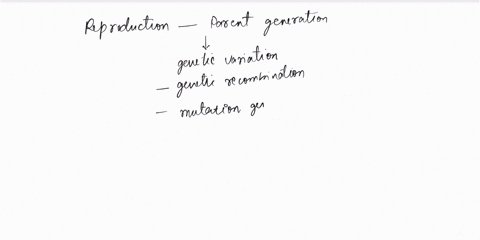 Reproduction — Parent generation
↓
genetic variation
— genetic recombination
— mutation ge